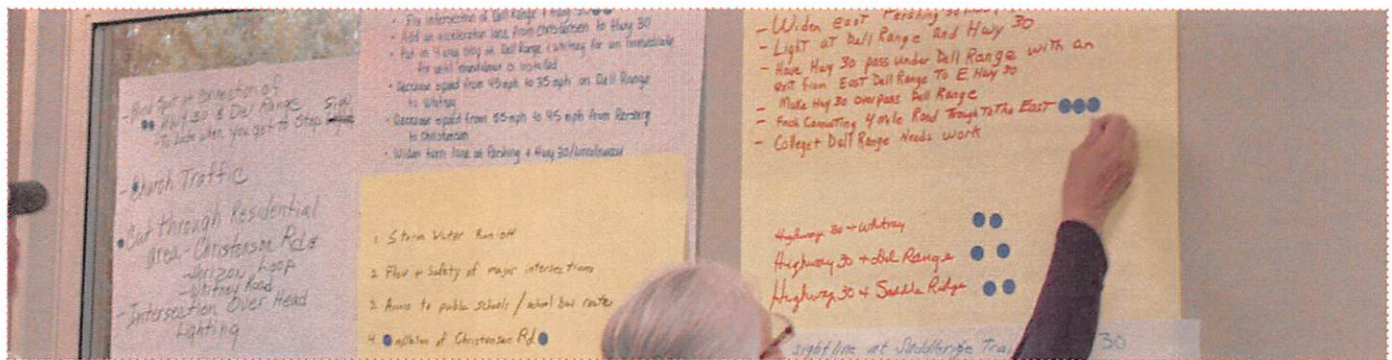 - Blind Spot at Connection of
Hwy 30 & Del Range
To Late when you get to Stop
- Church Traffic
Cut through Residential
area - Christenson Rd
- Horizon Loop
- Whitney Road
- Intersection Over Head
Lighting
• Fix intersection of Dell Range + Hwy 30
• Add an acceleration lane from Christensen to Hwy 30
• Put in 4 way stop at Dell Range + Whitney for an immediate
fix until roundabout is installed
• Decrease speed from 45 mph to 35 mph on Dell Range
to Whitney
• Decrease speed from 55 mph to 45 mph from Pershing
to Christensen
• Widen turn lane at Pershing + Hwy 30/Lincolnway
1. Storm Water Run-off
2. Flow + Safety of major intersections
3. Access to public schools / school bus routes
4. of Christensen Rd
- Widen east Pershing
- Light at Dell Range and Hwy 30
- Have Hwy 30 pass under Dell Range with an
exit from East Dell Range To E. Hwy 30
- Make Hwy 30 overpass Dell Range
- Connecting Road Through To The East
- College + Dell Range Needs work
Highway 30 + Whitney
Highway 30 + Del Range
Highway 30 + Saddle Ridge
sight line at Saddleridge Trail 30